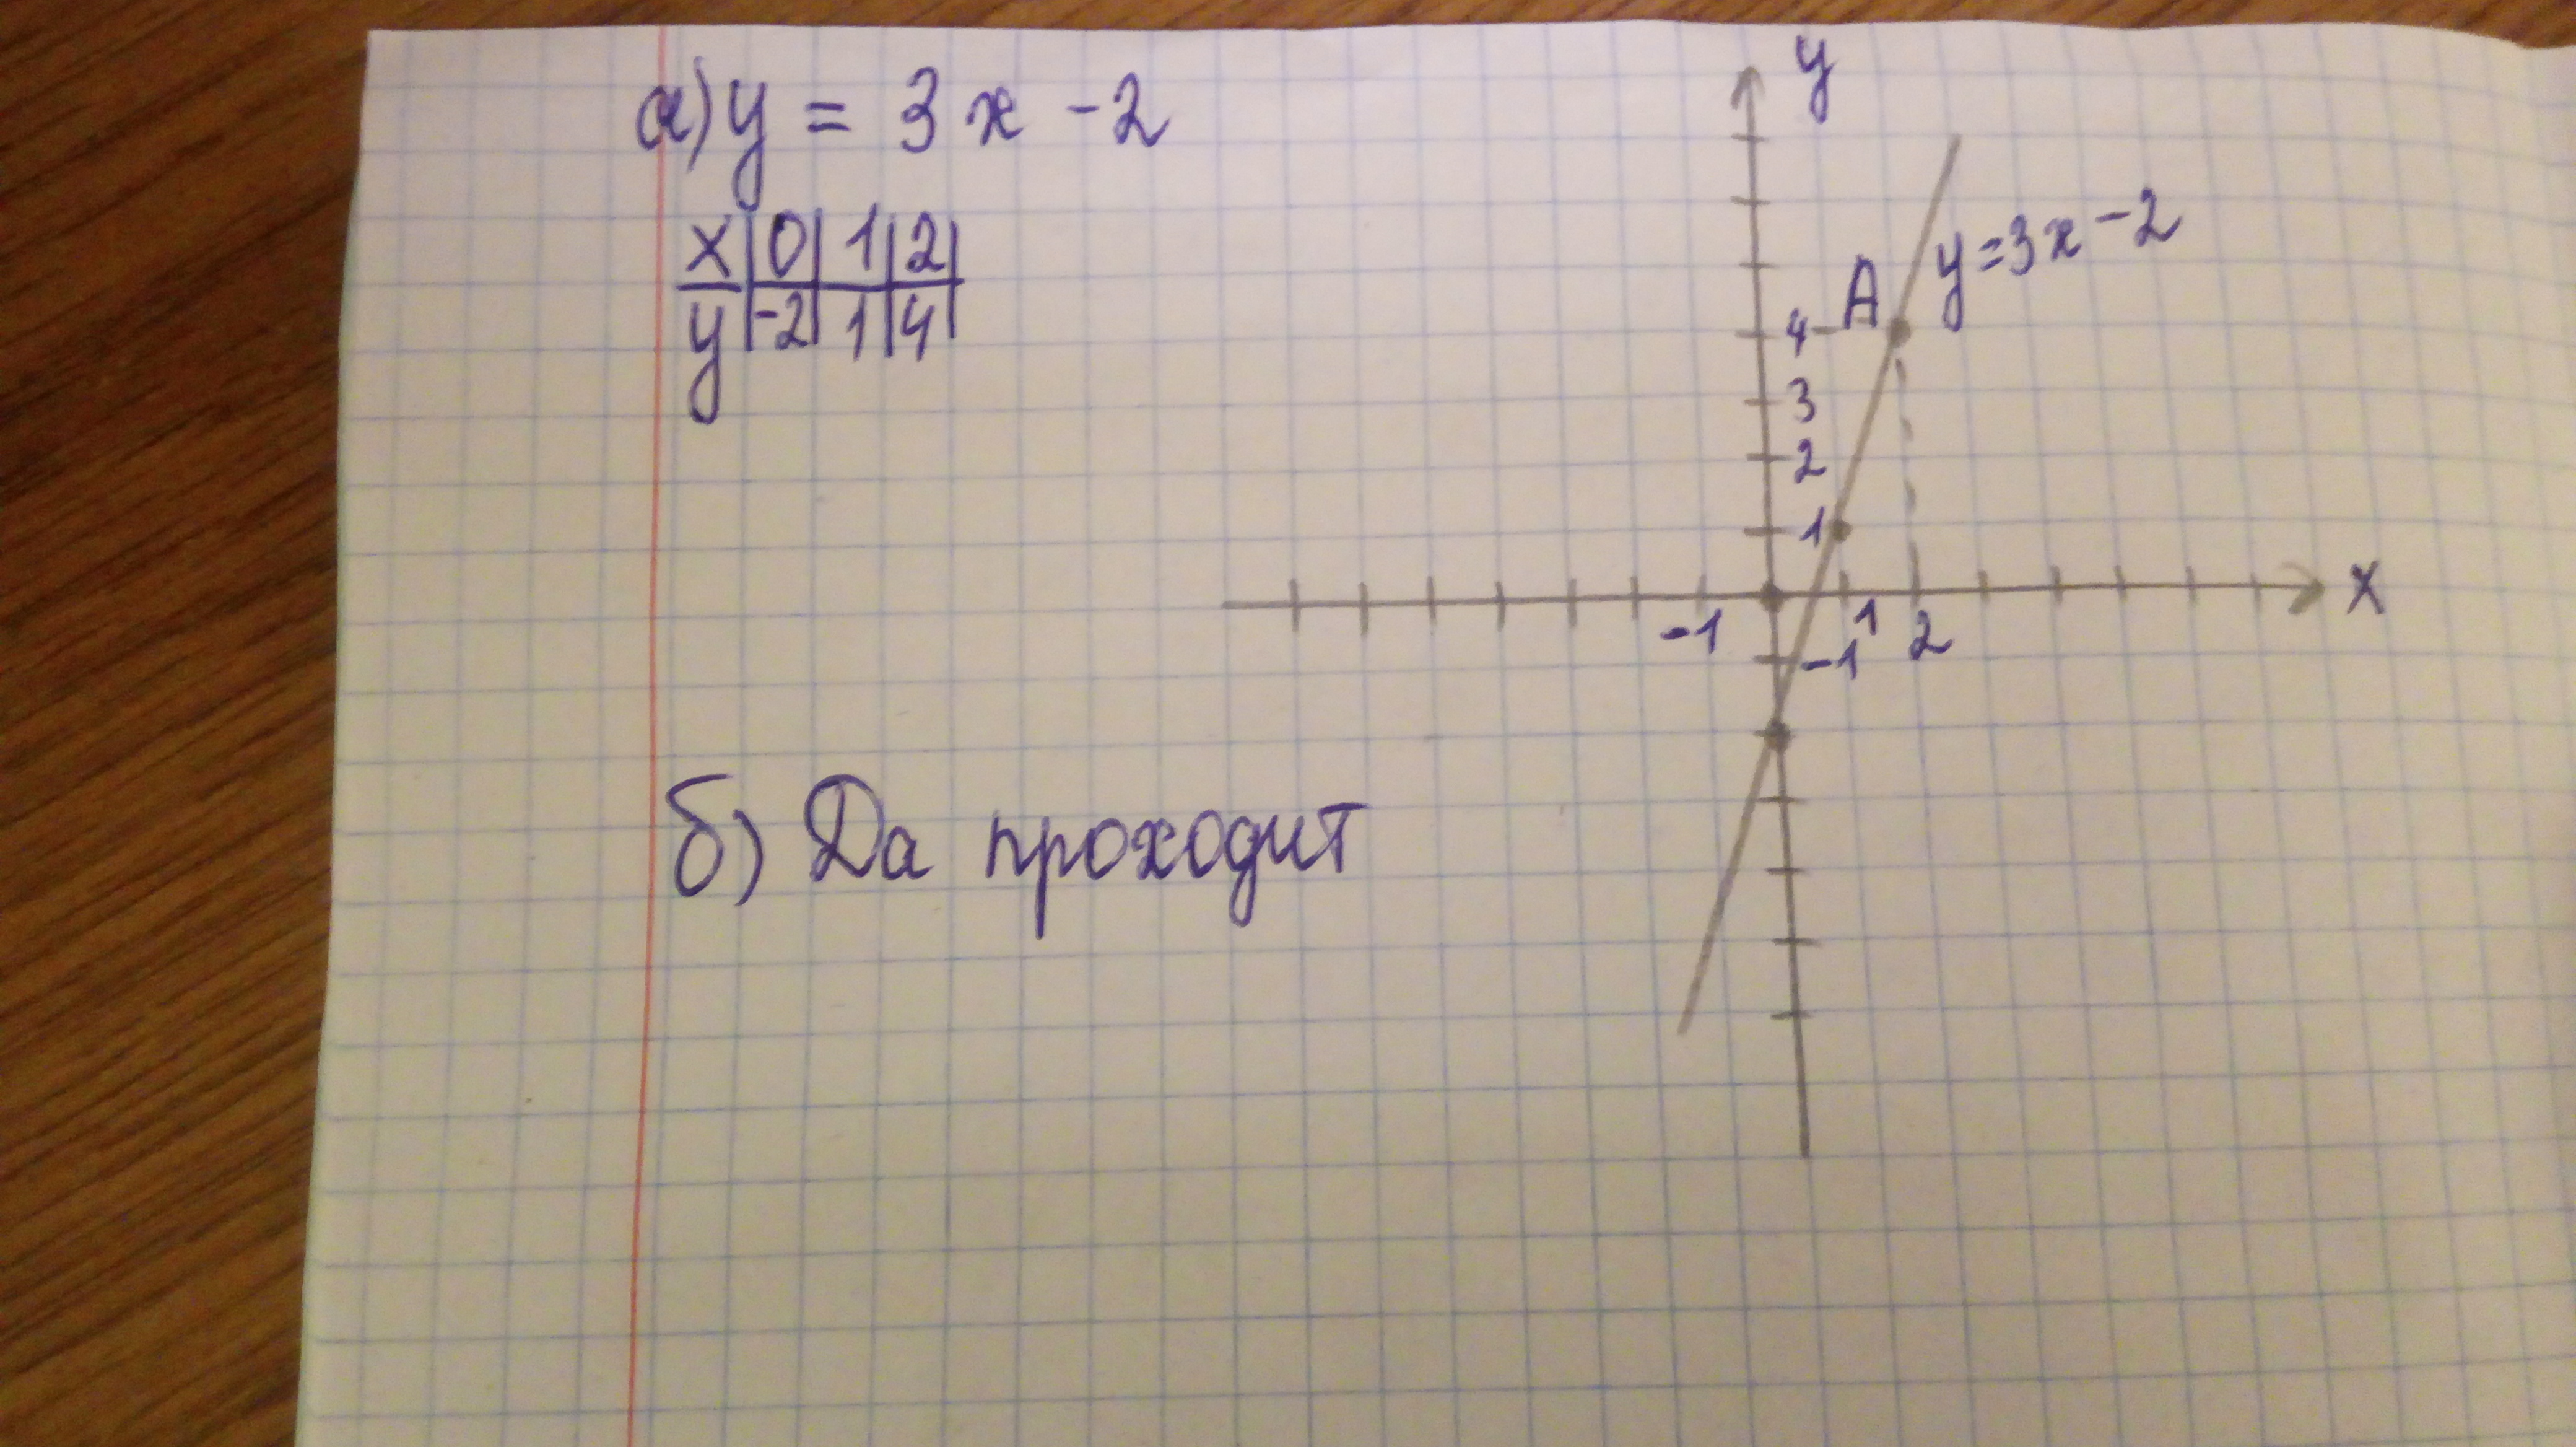 а) y = 3x - 2
x | 0 | 1 | 2 |
y | -2 | 1 | 4 |
y
y = 3x - 2
A
4
3
2
1
x
-1
1
2
-1
б) Да проходит